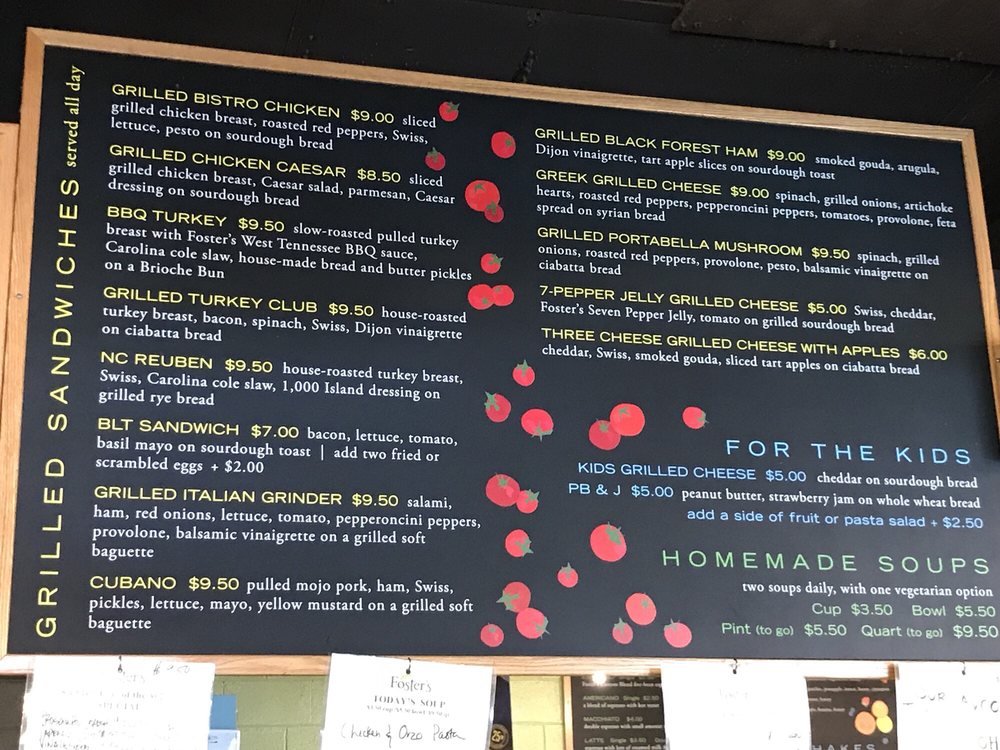 GRILLED SANDWICHES served all day
GRILLED BISTRO CHICKEN $9.00 sliced
grilled chicken breast, roasted red peppers, Swiss,
lettuce, pesto on sourdough bread
GRILLED CHICKEN CAESAR $8.50 sliced
grilled chicken breast, Caesar salad, parmesan, Caesar
dressing on sourdough bread
BBQ TURKEY $9.50 slow-roasted pulled turkey
breast with Foster's West Tennessee BBQ sauce,
Carolina cole slaw, house-made bread and butter pickles
on a Brioche Bun
GRILLED TURKEY CLUB $9.50 house-roasted
turkey breast, bacon, spinach, Swiss, Dijon vinaigrette
on ciabatta bread
NC REUBEN $9.50 house-roasted turkey breast,
Swiss, Carolina cole slaw, 1,000 Island dressing on
grilled rye bread
BLT SANDWICH $7.00 bacon, lettuce, tomato,
basil mayo on sourdough toast | add two fried or
scrambled eggs + $2.00
GRILLED ITALIAN GRINDER $9.50 salami,
ham, red onions, lettuce, tomato, pepperoncini peppers,
provolone, balsamic vinaigrette on a grilled soft
baguette
CUBANO $9.50 pulled mojo pork, ham, Swiss,
pickles, lettuce, mayo, yellow mustard on a grilled soft
baguette
GRILLED BLACK FOREST HAM $9.00 smoked gouda, arugula,
Dijon vinaigrette, tart apple slices on sourdough toast
GREEK GRILLED CHEESE $9.00 spinach, grilled onions, artichoke
hearts, roasted red peppers, pepperoncini peppers, tomatoes, provolone, feta
spread on syrian bread
GRILLED PORTABELLA MUSHROOM $9.50 spinach, grilled
onions, roasted red peppers, provolone, pesto, balsamic vinaigrette on
ciabatta bread
7-PEPPER JELLY GRILLED CHEESE $5.00 Swiss, cheddar,
Foster's Seven Pepper Jelly, tomato on grilled sourdough bread
THREE CHEESE GRILLED CHEESE WITH APPLES $6.00
cheddar, Swiss, smoked gouda, sliced tart apples on ciabatta bread
FOR THE KIDS
KIDS GRILLED CHEESE $5.00 cheddar on sourdough bread
PB & J $5.00 peanut butter, strawberry jam on whole wheat bread
add a side of fruit or pasta salad + $2.50
HOMEMADE SOUPS
two soups daily, with one vegetarian option
Cup $3.50 Bowl $5.50
Pint (to go) $5.50 Quart (to go) $9.50
SPECIAL
Foster's
TODAY'S SOUP
Chicken & Orzo Pasta
AMERICANO Single $2.50
a blend of espresso with hot water
MACCHIATO
double espresso with small amount
LATTE Single
SHAKES